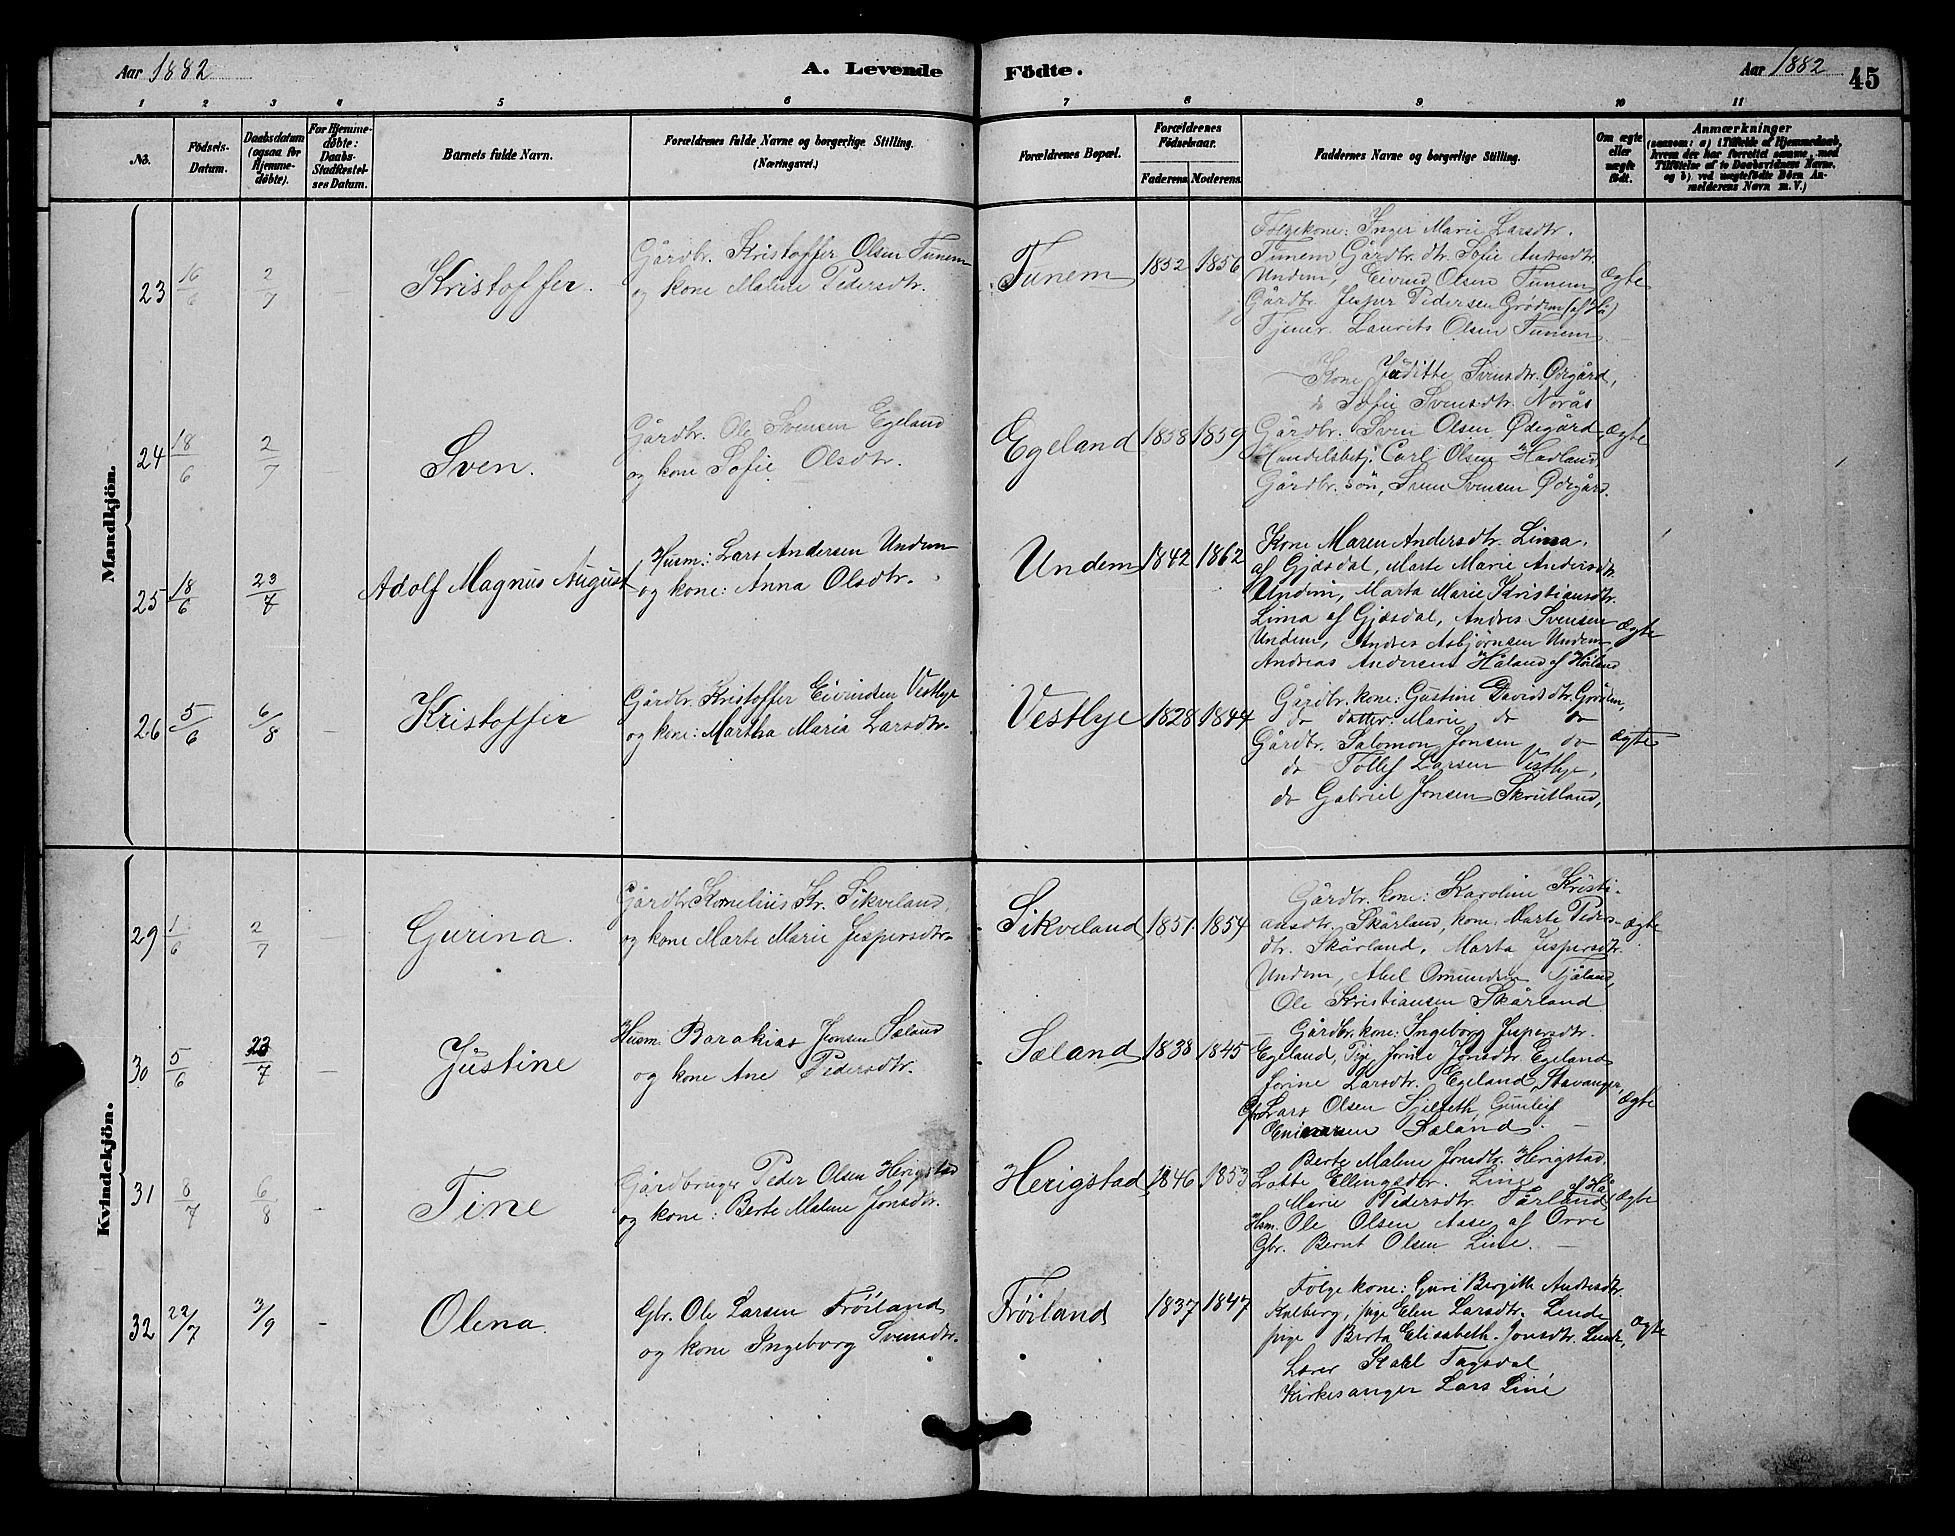 Aar 1882 A. Levende Födte. Aar 1882 45
1 2 3 4 5 6 7 8 9 10 11
No. Födsels-Datum. Daabsdatum (ogsaa for Hjemmedöbte). For Hjemmedöbte: Daabs-Stadfæstelses Datum. Barnets fulde Navn. Forældrenes fulde Navne og borgerlige Stilling. (Næringsvei.) Forældrenes Bopæl. Forældrenes Födselsaar. Faderens Moderens. Faddernes Navne og borgerlige Stilling. Om ægte eller uægte födt. Anmærkninger (saasom: a) i Tilfælde af Hjemmedaab, hvem der har forrettet samme, med Tilföielse af to Daabsvidners Navne, og b) ved uægtefödte Börn Anmelderens Navn m. V.)
Mandkjön.
23 16/6 2/7 Kristoffer.
Gårdbr. Kristoffer Olsen Tunem
og kone Malene Pedersdtr.
Tunem 1852 1856
Følgekone: Inger Marie Larsdtr.
Tunem Gårdbr. dtr. Sofie Andresdtr.
Undem, Eivind Olsen Tunem ægte
Gårdbr. Jesper Pedersen Grødem (af Hå)
Tjener. Laurits Olsen Tunem
24 18/6 2/7 Sven.
Gårdbr. Ole Svensen Egeland
og kone Sofie Olsdtr.
Egeland 1858 1859
Kone Juditte Svensdtr. Ødegård,
do Sofie Svensdtr. Norås
Gårdbr. Sven Olsen Ødegård, ægte
Handelsbetj. Carl Olsen Hadland
Gårdbr. søn, Sven Svensen Ødegård.
25 18/6 23/7 Adolf Magnus August
Husm: Lars Andersen Undem
og kone: Anna Olsdtr.
Undem 1842 1862
Kone Maren Andersdtr. Lima,
af Gjæsdal, Marte Marie Andersdtr.
Undem, Marta Marie Kristiansdtr.
Lima af Gjæsdal, Andres Svensen ægte
Undem, Andres Asbjørnsen Undem,
Andreas Andersen Håland af Høiland
26 5/6 6/8 – Kristoffer
Gårdbr. Kristoffer Eivindsen Vestlye
og kone: Martha Maria Larsdtr.
Vestlye 1828 1844
Gårdbr. kone: Gustine Davidsdtr. Grødem,
do datter: Marie do do
Gårdbr. Salomon Jonsen do ægte
do Tollef Larsen Vestlye,
do Gabriel Jonsen Skrutland,
Kvindekjön.
29 1/6 2/7 Gurina.
Gårdbr. Kornelius Kr. Sikveland,
og kone Marte Marie Jespersdtr.
Sikveland 1851 1854
Gårdbr. kone: Karoline Kristi-
ansdtr. Skårland, kone. Marte Peders- ægte
dtr. Skårland, Marta Jespersdtr.
Undem, Abel Omundsen
Ole Kristiansen Skårland
30 5/6 23/7 – Justine
Husm. Barakias Jonsen Sæland
og kone Ane Pedersdtr.
Sæland 1838 1845
Gårdbr. kone: Ingeborg Jespersdtr.
Egeland, Pige Jorine Jonsdtr. Egeland
Jorine Larsdtr. Egeland, Stavanger,
Gbr. Lars Olsen Sjelseth, Gunleif ægte
Sæland.
31 8/7 6/8 – Tine
Gårdbruger Peder Olsen Herigstad
og kone: Berte Malene Jonsdtr.
Herigstad 1846 1853
Berte Malene Jonsdtr. Herigstad.
Lotte Ellingsdtr. Line
Marie Pedersdtr. Tårland af Hå, ægte
Hsm. Ole Olsen Aase af Orre
Gbr. Bernt Olsen Line.
32 22/7 3/9 – Olena.
Gbr. Ole Larsen Frøiland
og kone Ingeborg Svensdtr.
Frøiland 1837 1847
Følge kone: Guri Bergitte Andresdtr.
Kalberg, pige Elen Larsdtr. Lende
pige Berta Elisabeth Jonsdtr. Lende, ægte
Lærer Karl Tagsdal
Kirkesanger Lars Line